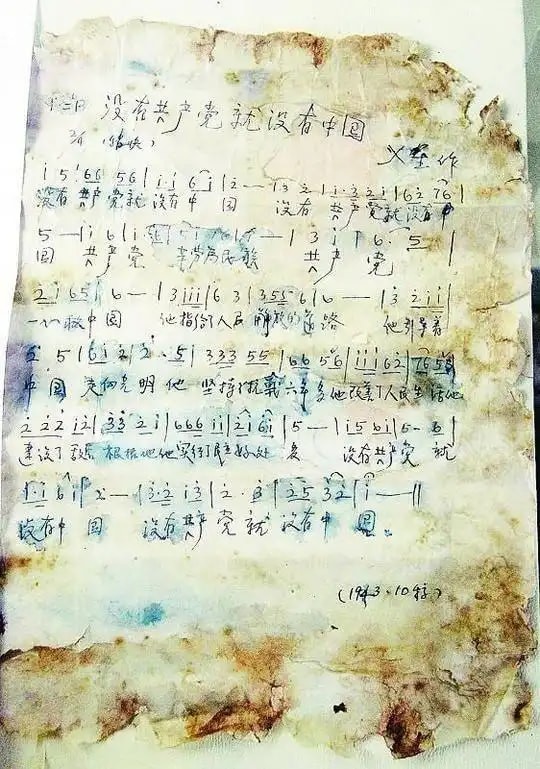 没有共产党就没有中国
作
1 5 6 6 5 6 | 1·1 6 1 | 2 — | 1 3 2 | 1·3 2 1 | 6 2 7 6 |
没有共产党就没有中国 没有共产党就没有中
5 — | 1 6 | 1 | 3 1 | 6· 5 |
国 共产党 辛劳为民族 共产党
2 1 6 5 | 6 — | 3 1 1 1 | 6 3 | 3 5 5 6 | 6 — | 3 2 1 1 |
一心救中国 他指给了人民解放的道路 他引导着
5 5 | 6 1 2 | 2·5 | 3 3 3 5 5 | 6 6 5 6 | 1 1 1 6 2 | 7 6 5
中国走向光明他 坚持了抗战六年多他改善了人民生活他
2 2 2 1 2 | 3 3 2 1 | 6 6 6 1 1 | 2 1 6 1 | 5 — | 1 5 6 1 | 5· 6 |
建设了敌后根据地他实行了民主好处多 没有共产党就
1·1 6 1 | 2 — | 3·2 1 3 | 2·3 | 2 5 3 2 | 1 — ||
没有中国 没有共产党就没有中国。
(1943.10